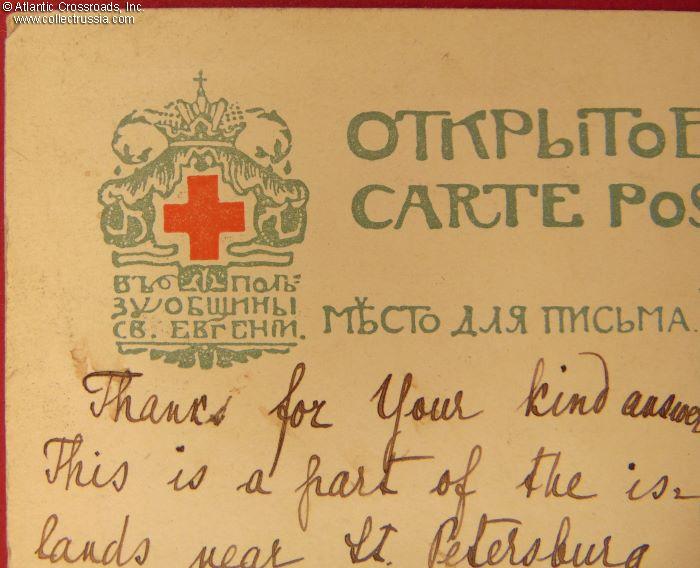 © Atlantic Crossroads, Inc.
www.collectrussia.com
ОТКРЫТОЕ
CARTE POS
ВЪ ПОЛЬ-
ЗУ ОБЩИНЫ
СВ. ЕВГЕНІИ.
МѢСТО ДЛЯ ПИСЬМА.
Thanks for Your kind answer
This is a part of the is-
lands near St. Petersburg